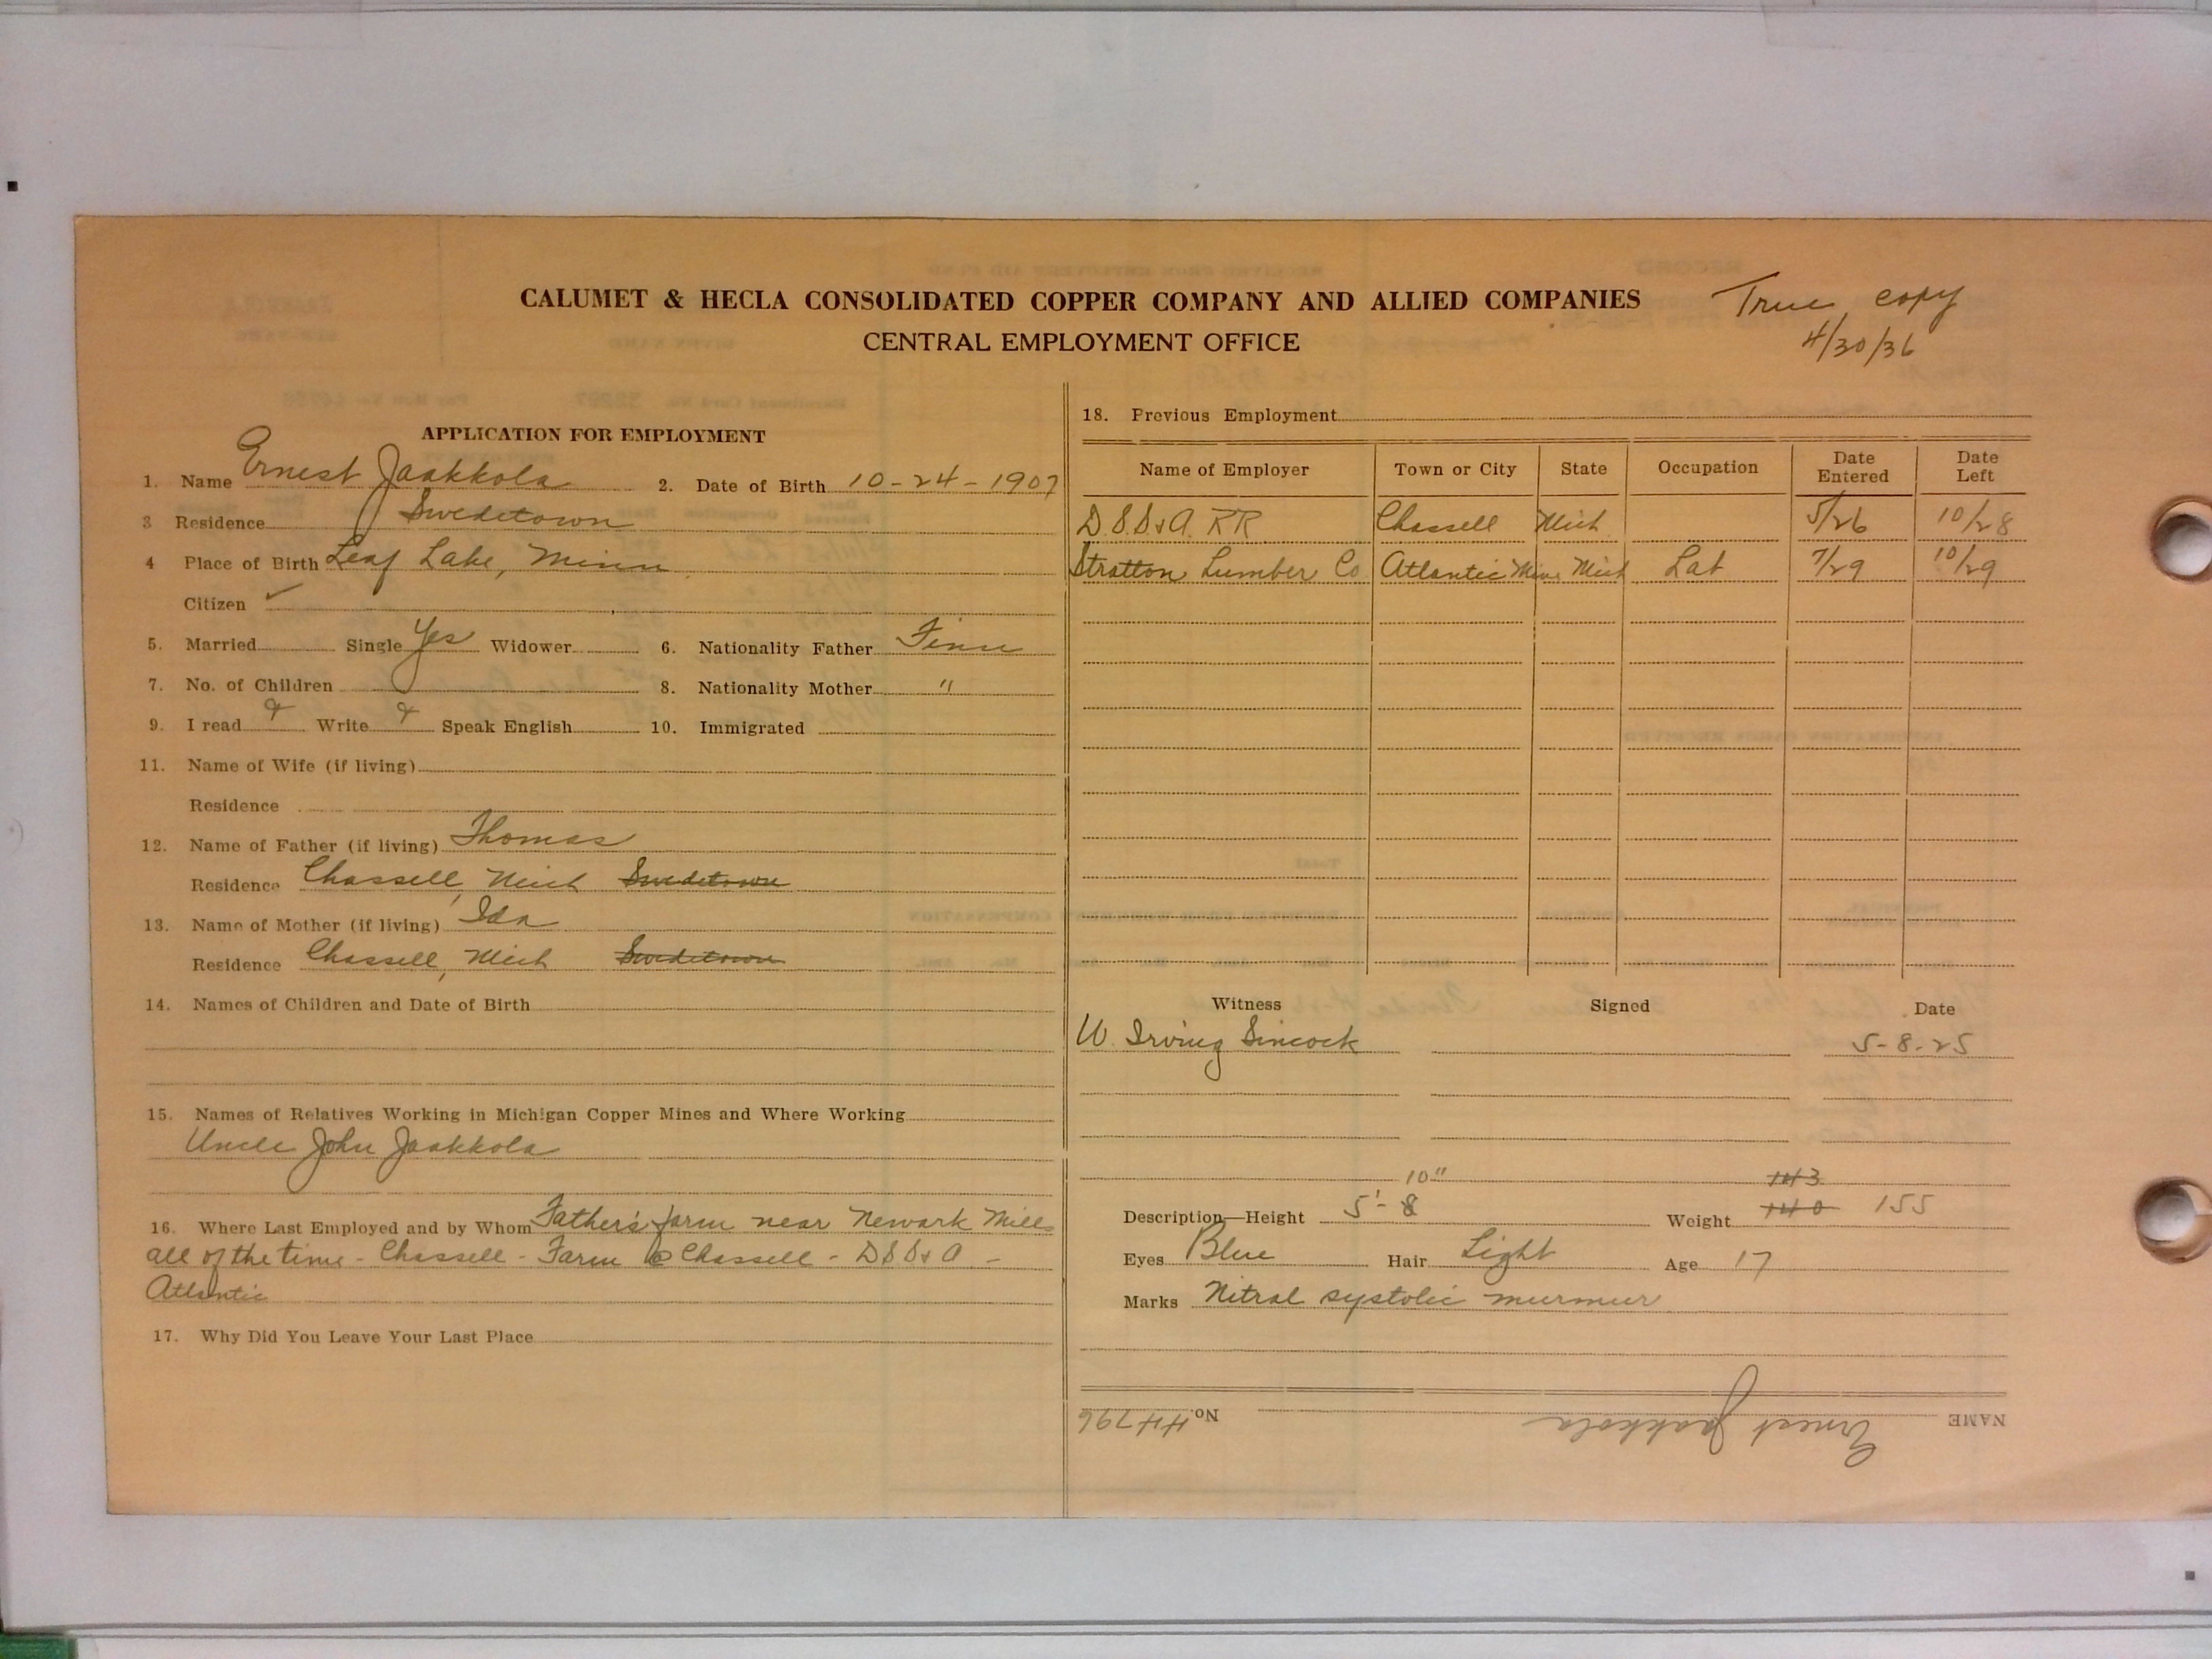 CALUMET & HECLA CONSOLIDATED COPPER COMPANY AND ALLIED COMPANIES
CENTRAL EMPLOYMENT OFFICE
True copy
4/30/36
APPLICATION FOR EMPLOYMENT
1. Name Ernest Jaakkola 2. Date of Birth 10-24-1907
3 Residence Swedetown
4 Place of Birth Leaf Lake, Minn.
Citizen ✓
5. Married Single Yes Widower 6. Nationality Father Finn
7. No. of Children 8. Nationality Mother "
9. I read Write Speak English 10. Immigrated
11. Name of Wife (if living)
Residence
12. Name of Father (if living) Thomas
Residence Chassell, Mich Swedetown
13. Name of Mother (if living) Ida
Residence Chassell, Mich Swedetown
14. Names of Children and Date of Birth
15. Names of Relatives Working in Michigan Copper Mines and Where Working
Uncle John Jaakkola
16. Where Last Employed and by Whom Father's farm near Newark Mills
all of the time - Chassell - Farm @ Chassell - DSS&A -
Atlantic
17. Why Did You Leave Your Last Place
18. Previous Employment
Name of Employer Town or City State Occupation Date Entered Date Left
D.S.S.&A. RR Chassell Mich 5/26 10/28
Stratton Lumber Co Atlantic Mine Mich Lab 7/29 10/29
Witness Signed Date
W. Irving Sincock 5-8-25
10" 143
Description—Height 5'-8 Weight 140 155
Eyes Blue Hair Light Age 17
Marks Mitral systolic murmur
NAME Ernest Jaakkola No. 44796